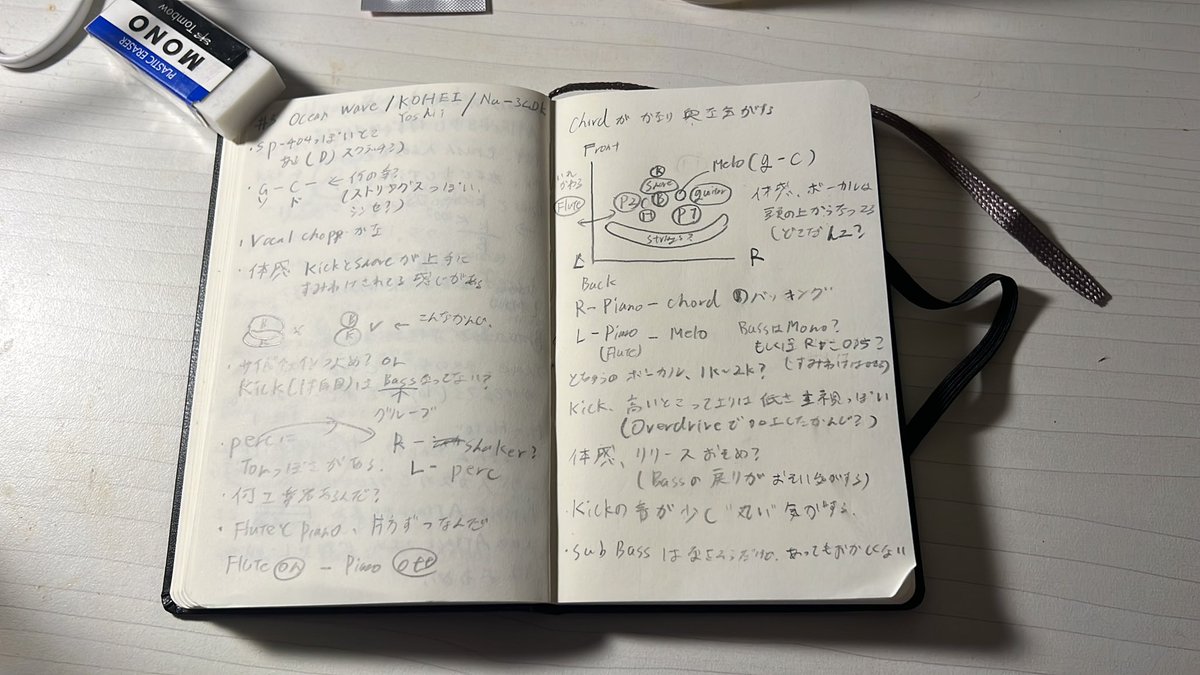 Tombow
MONO
PLASTIC ERASER
#3 Ocean Wave / KOHEI / Na-3LDK
Yoshii
・SP-404っぽいとこ
ある(D)スクラッチ)
・G - C - ← 何の音?
ソ ド (ストリングスっぽい
シンセ?)
・Vocal chopp がな
・体感 KickとSnareが上手に
すみわけされてる感じがある
× V ← こんなかんじ
・サイドチェイン つよめ? or
Kick(1拍目)は Bass なってない?
グルーブ
・percに R - shaker?
Tomっぽさがある。 L - perc
・何工夫あるんだ?
・FluteとPiano、片方ずつなんだ
Flute on - Piano off
Chordが かなり 奥な気がす
Front
いれかわる
Flute
K
Snare
P2 C B guitar
H P1
strings?
Melo (G-C)
体感、ボーカルは
頭の上からなってる
(どこなん?
L R
Back
R - Piano - chord のバッキング
L - Piano - Melo BassはMono?
(Flute) もしくは Rがこのあち?
(すみわけは
とちゅうの ボーカル、1k~2k?
Kick、高いとこってよりは 低さ 重視っぽい
(Overdriveで加工したかんじ?)
体感、リリースおそめ?
(Bassの戻りが おそい気がする)
・Kickの音が少し"丸い"気がする、
・Sub Bass は なさそうだけど、あってもおかしくない